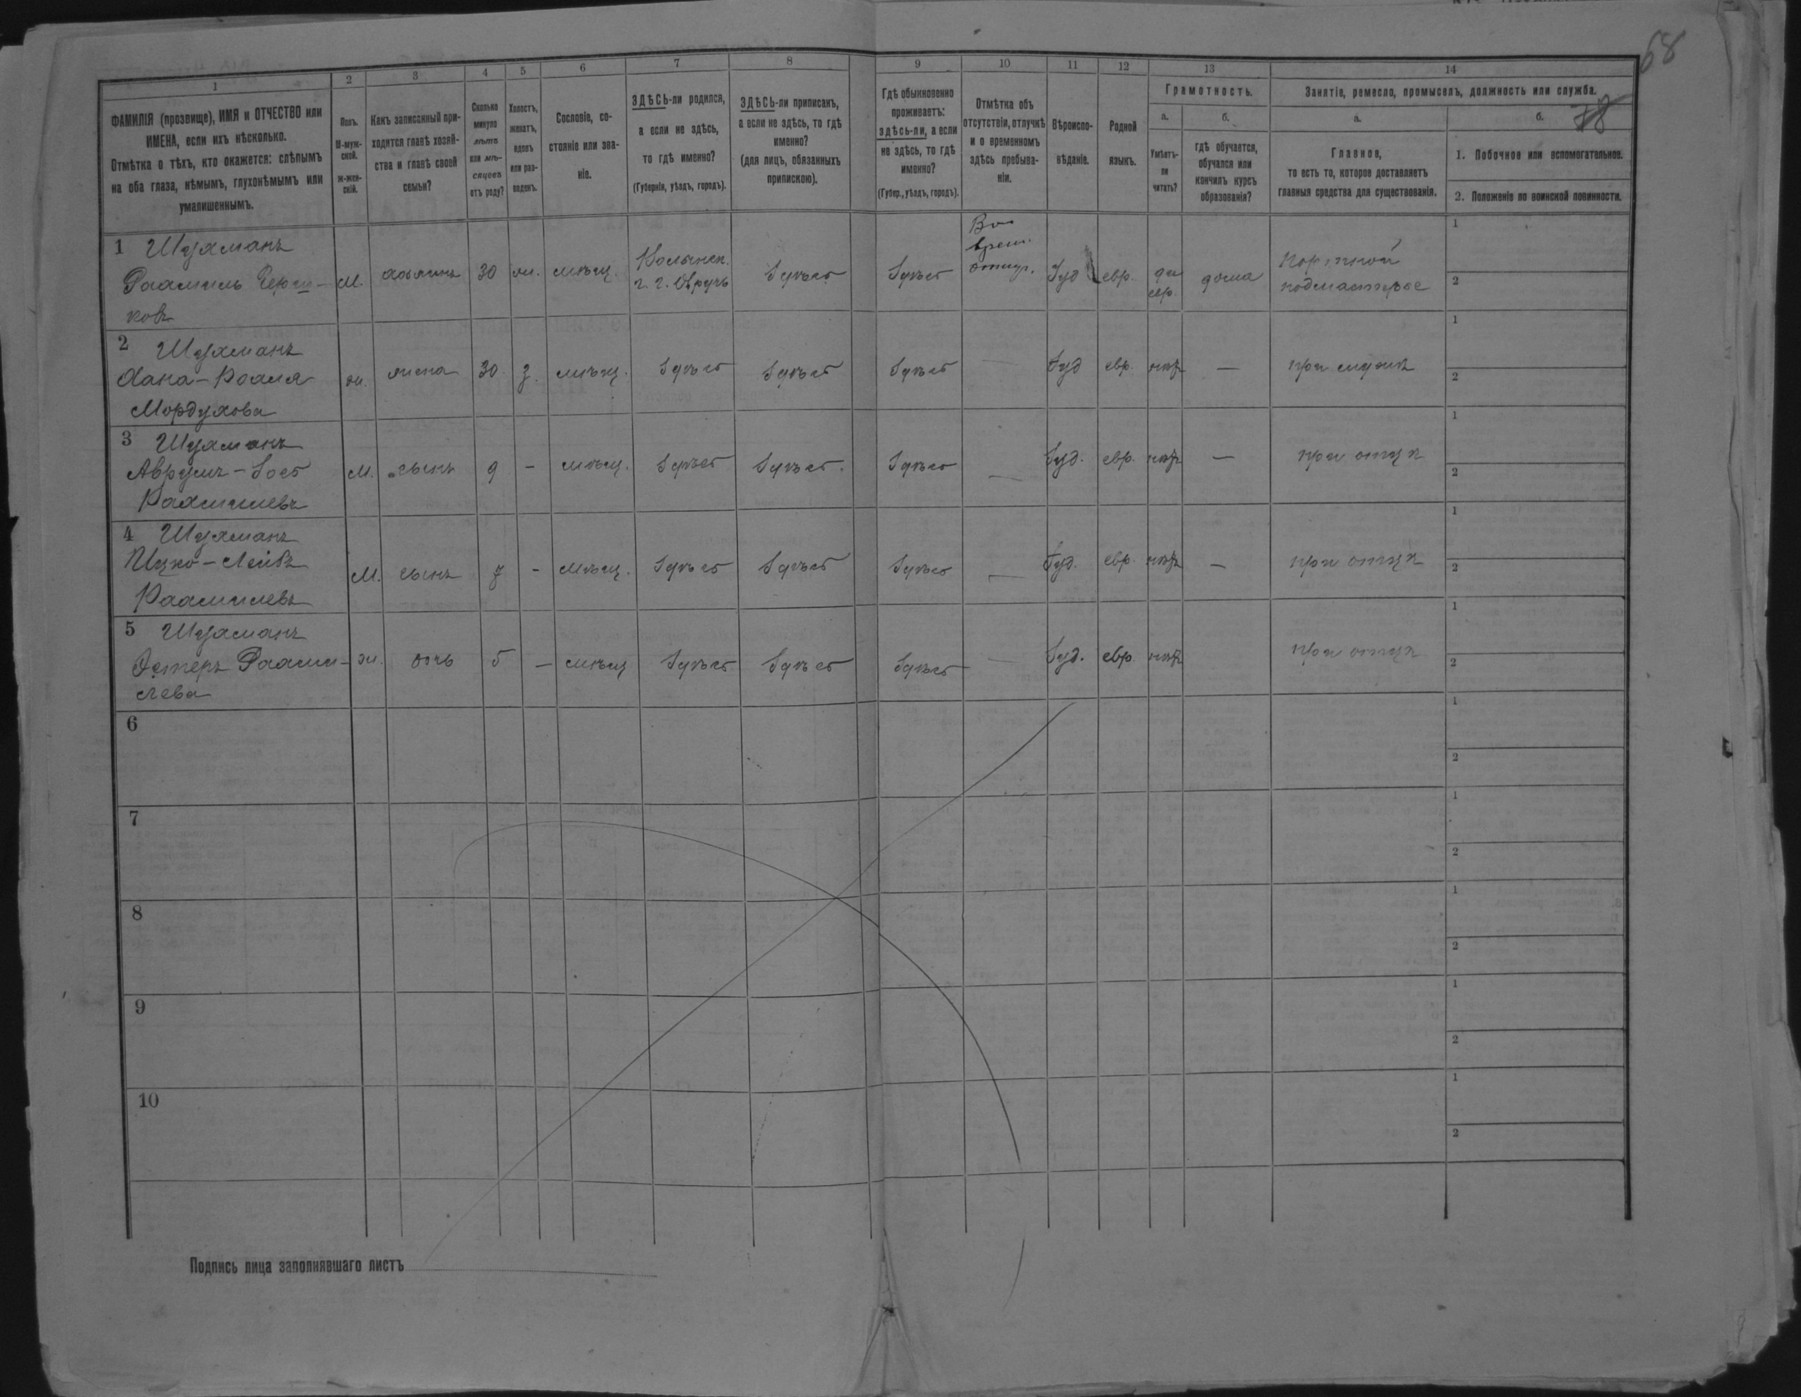 68
1
2
3
4
5
6
7
8
9
10
11
12
13
14
ФАМИЛІЯ (прозвище), ИМЯ и ОТЧЕСТВО или
ИМЕНА, если ихъ нѣсколько.
Отмѣтка о тѣхъ, кто окажется: слѣпымъ
на оба глаза, нѣмымъ, глухонѣмымъ или
умалишеннымъ.
Полъ.
М-муж-
ской.
ж-жен-
скій.
Какъ записанный при-
ходится главѣ хозяй-
ства и главѣ своей
семьи?
Сколько
минуло
лѣтъ
или мѣ-
сяцевъ
отъ роду?
Холостъ,
женатъ,
вдовъ
или раз-
веденъ.
Сословіе, со-
стояніе или зва-
ніе.
ЗДѢСЬ-ли родился,
а если не здѣсь,
то гдѣ именно?
(Губернія, уѣздъ, городъ).
ЗДѢСЬ-ли приписанъ,
а если не здѣсь, то гдѣ
именно?
(для лицъ, обязанныхъ
припискою).
Гдѣ обыкновенно
проживаетъ:
здѣсь-ли, а если
не здѣсь, то гдѣ
именно?
(Губер., уѣздъ, городъ).
Отмѣтка объ
отсутствіи, отлучкѣ
и о временномъ
здѣсь пребыва-
ніи.
Вѣроиспо-
вѣданіе.
Родной
языкъ.
Грамотность.
а.
Умѣетъ-
ли
читать?
б.
гдѣ обучается,
обучался или
кончилъ курсъ
образованія?
Занятіе, ремесло, промыселъ, должность или служба.
78
а.
Главное,
то есть то, которое доставляетъ
главныя средства для существованія.
б.
1. Побочное или вспомогательное.
2. Положеніе по воинской повинности.
1 Шухманъ
Рахмиль Герш-
ковъ
М.
хозяинъ
30
ж.
мѣщ.
Волынск.
г. г. Овручъ
Здѣсь
Здѣсь
Во
врем.
отлуч.
Іуд
евр.
да
евр.
дома
Портной
подмастерье
1
2
2 Шухманъ
Хана-Рахля
Мордухова
ж.
жена
30
з.
мѣщ.
Здѣсь
Здѣсь
Здѣсь
—
Іуд
евр.
нѣт
—
при мужѣ
1
2
3 Шухманъ
Аврумъ-Іось
Рахмилевъ
М.
сынъ
9
–
мѣщ.
Здѣсь
Здѣсь.
Здѣсь
—
Іуд.
евр.
нѣт
—
при отцѣ
1
2
4 Шухманъ
Ицко-Лейбъ
Рахмилевъ
М.
сынъ
7
–
мѣщ.
Здѣсь
Здѣсь
Здѣсь
—
Іуд.
евр.
нѣт
—
при отцѣ
1
2
5 Шухманъ
Эстеръ Рахми-
лева
ж.
дочь
5
—
мѣщ
Здѣсь
Здѣсь
Здѣсь
—
Іуд.
евр
нѣт
при отцѣ
1
2
6
1
2
7
1
2
8
1
2
9
1
2
10
1
2
Подпись лица заполнявшаго листъ